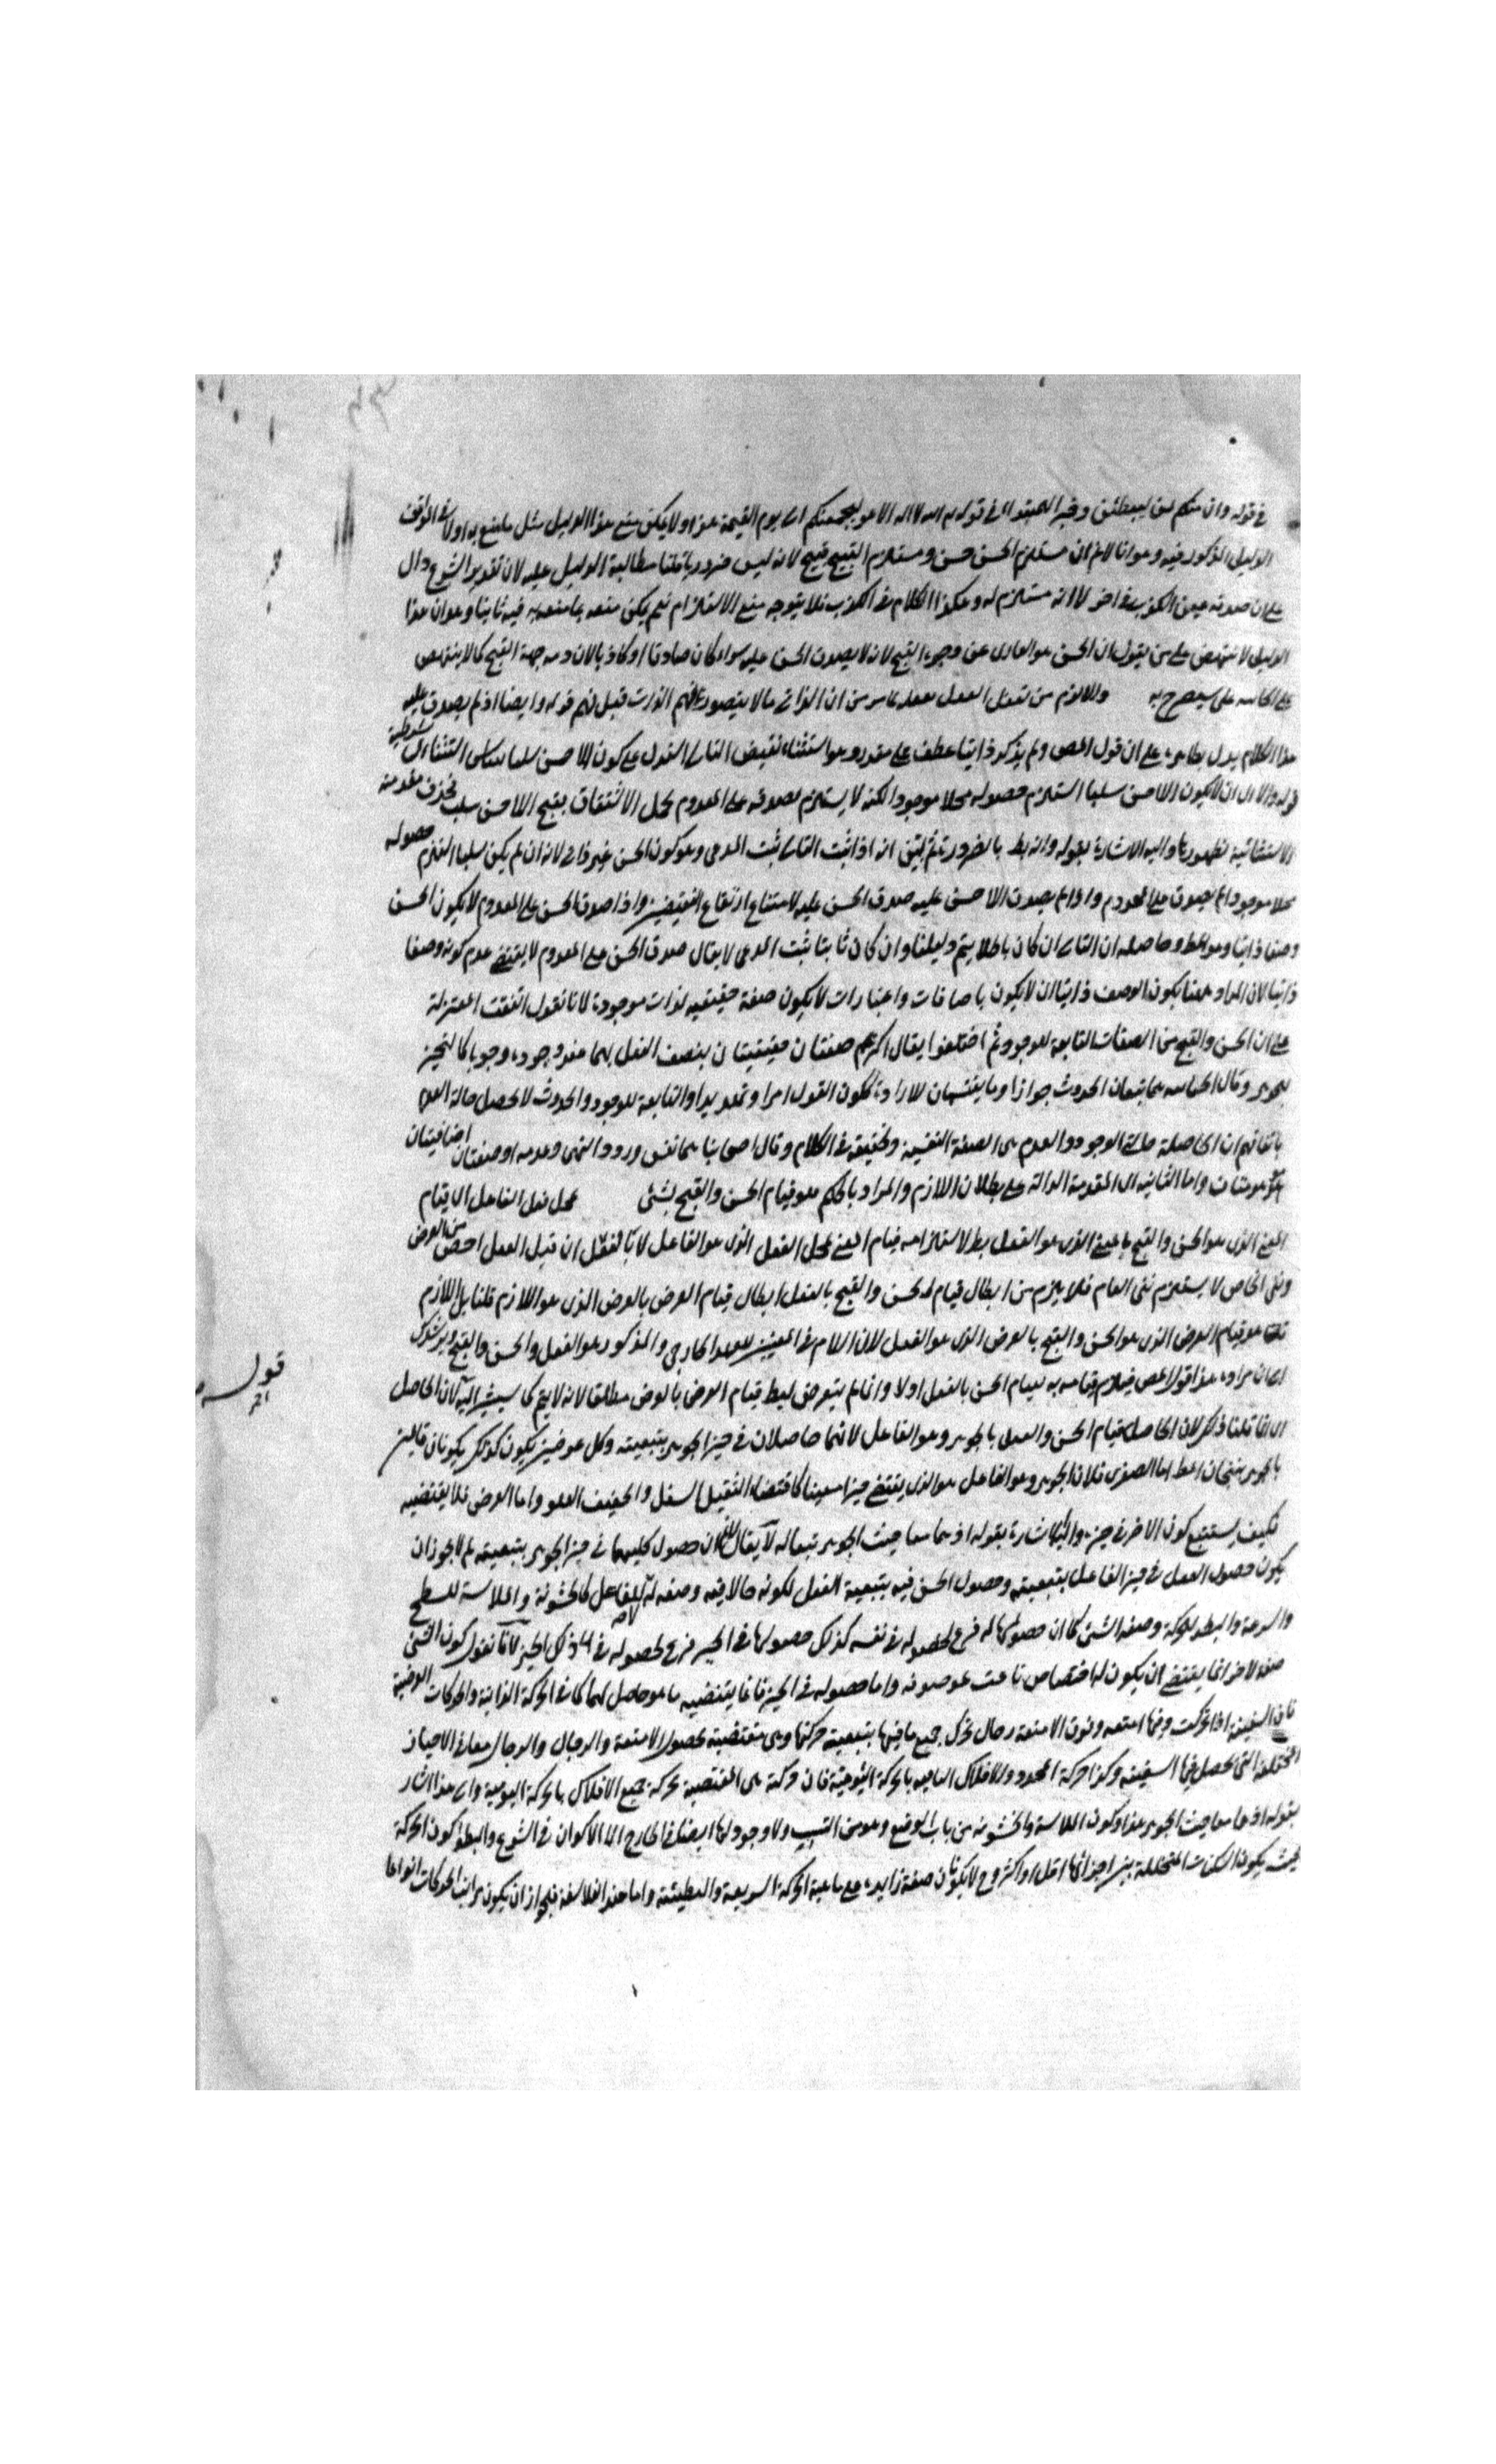 في قوله وان منكم لمن ليبطئن وخبر المبتدا في قوله الله لا اله الا هو ليجمعنكم الى يوم القيمة هذا ولا يمكن منع هذا الدليل بمثل ما منع به اولا في المواقف
الدليل المذكور فيه وهو انا لا نم ان مستلزم الحسن حسن ومستلزم القبيح قبيح لانه ليس ضروريا قلنا مطالبة الدليل عليه لان تقدير الشرع دال
على ان صدقه عين الكذب في اخر لا انه مستلزم له وهكذا الكلام في الكذب فلا يتوجه منع الاستلزام نعم يمكن منعه بما منعه به فيه ثانيا وهو ان هذا
الدليل لا ينتهض على من يقول ان الحسن هو العارى عن وجوه القبح لانه لا يصدق الحسن عليه سواء كان صادقا او كاذبا لان فيه جهة القبح كما لا ينتهض
على سيصرح به والا لزم من تعقل الفعل تعقله لما مر من ان الذاتي ما لا يتصور فهم الذات قبل فهم قوله وايضا اذ لم يصدق عليه
هذا الكلام يدل بظاهره على ان قول المص ولم يذكر ذاتيا عطف على مقدر وهو استثناء نقيض التالى استدل على كون اللاحسن سلبا بقياس استثنائى شرطية
قوله والا اى ان لا يكون اللاحسن سلبا استلزم حصوله محلا موجودا لكنه لا يستلزم لصدقه على المعدوم اللاحسن سلب بحذف مقدمته
الاستثنائية لظهورها واليه الاشارة بقوله وانه بط بالضرورة ثم يتبين انه اذا ثبت التالى ثبت المدعى وهو كون الحسن غير ذاتى لانه ان لم يكن سلبا استلزم حصوله
محلا موجودا لم يصدق على المعدوم واذا لم يصدق اللاحسن عليه صدق الحسن عليه لامتناع ارتفاع النقيضين واذا صدق الحسن على المعدوم لا يكون الحسن
وصفا ذاتيا وهو المط وحاصله ان التالى ان كان باطلا يتم دليلنا وان كان ثابتا ثبت المدعى لا يقال صدق الحسن على المعدوم لا يقتضى عدم كونه وصفا
ذاتيا لان المراد هنا بكون الوصف ذاتيا ان لا يكون باضافات واعتبارات لا بكون صفة حقيقية لذات موجودة لانا نقول اتفقت المعتزلة
على ان الحسن والقبح من الصفات التابعة للوجود ثم اختلفوا فقال اكثرهم صفتان حقيقيتان يتصف الفعل بهما عند وجوده وجوبا كالتحيز
للجوهر وقال هما يتبعان الحدوث جوازا وما يقتضيهان للارادة ككون القول امرا وتهديدا والتابعة للوجود والحدوث لا تحصل حالة العدم
باتفاقهم ان الحاصلة حالتى الوجود والعدم هى الصفة النفسية وتحقيقه في الكلام وقال اصحابنا هما نفس ورود النهى وعدمه او صفتان اضافيتان
واما الثانية اى المقدمة الدالة على بطلان اللازم والمراد بالحكم هو قيام الحسن والقبح بشئ محل نقل الفاعل اى قيام
المعنى الذى هو الحسن والقبح بالمعنى الذى هو الفعل بط لاستلزامه قيام المعنى بمحل الفعل الذى هو الفاعل لا بالفعل ان قيل الفعل اخص من العرض
ونفى الخاص لا يستلزم نفى العام فلا يلزم من ابطال قيام الحسن والقبح بالفعل ابطال قيام العرض بالعرض الذى هو اللازم قلنا بل اللازم
هو قيام العرض الذى هو الحسن والقبح بالعرض الذى هو الفعل لان اللام في المعنيين للعهد الخارجى والمذكور هو الفعل والحسن والقبح ويرشدك
الى ان مراده هذا قول المص فيلزم قيامه به لقيام الحسن بالفعل اولا وانما لم يتعرض لبط قيام العرض بالعرض مطلقا لانه لا يتم كما سيشير اليه لان الحاصل
اى انما قلنا ذلك لان الحاصل قيام الحسن والفعل بالجوهر وهو الفاعل لانهما حاصلان في حيز الجوهر بتبعيته وكل عرضين يكون كذلك يكونان قائمين
بالجوهر ينتجان المط اما الصغرى فلان الجوهر وهو الفاعل هو الذى يقتضى حيزا معينا كاقتضاء الثقيل السفل والخفيف العلو واما العرض فلا يقتضيه
فكيف يستتبع كون الاخر في حيزه واليه الاشارة بقوله اذ هما معا حيث الجوهر تبعا له لا يقال ان حصول كليهما في حيز الجوهر بتبعيته لم لا يجوز ان
يكون حصول الفعل في حيز الفاعل بتبعيته وحصول الحسن فيه بتبعية الفعل لكونه حالا فيه وصفة له لا للفاعل كالخشونة والملاسة للسطح
والسرعة والبطؤ للحركة وصفة الشئ كما ان حصولها له فرع لحصوله في نفسه كذلك حصولها في الحيز فرع لحصوله في ذلك الحيز لانا نقول كون الشئ
صفة لاخر انما يقتضى ان يكون له اختصاص ناعت بموصوفه واما حصوله في الحيز فانما يقتضيه ما هو حاصل لهما كما في الحركة الذاتية والحركات العرضية
فان السفينة اذا تحركت وفيها امتعة وفوق الامتعة رجال تحرك جميع ما فيها بتبعية حركتها وهى مقتضية لحصول الامتعة والرجال معا في الاحياز
المختلفة التى تحصل فيها السفينة وكذا حركة المحدد والافلاك الباقية بالحركة اليومية فان حركته هى المقتضية لحركة جميع الافلاك بالحركة اليومية والى هذا اشار
بقوله اذ هما معا حيث الجوهر هذا وكون الملاسة والخشونة من باب الوضع وهو من النسب ولا وجود لها ايضا في الخارج الا الاكوان في الشرع والبطؤ كون الحركة
بحيث يكون السكنات المتخللة بين اجزائها اقل او اكثر وح لا يكونان صفة زايدة على ماهية الحركة السريعة والبطيئة واما عند الفلاسفة فلجواز ان يكون مراتب الحركات انواعا
قوله